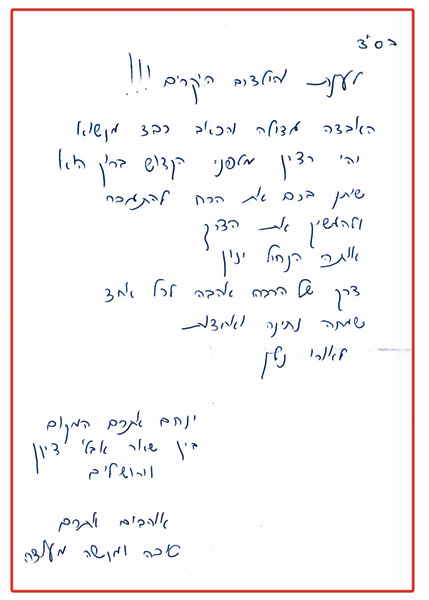 בס"ד
לענת והילדים היקרים !!!
האבידה גדולה והכאב כבד מנשוא
יהי רצון מלפני הקדוש ברוך הוא
שיתן בכם את הכח להתגבר
ולהמשיך את הדרך
אותה הנחיל ינון
דרך של הרבה אהבה לכל אחד
שמחה נתינה ואחדות
לאורו נלך
ינחם אתכם המקום
בין שאר אבלי ציון
וירושלים
אוהבים אתכם
ומשה